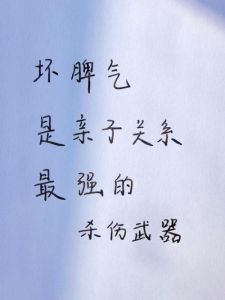 坏脾气
是亲子关系
最强的
杀伤武器